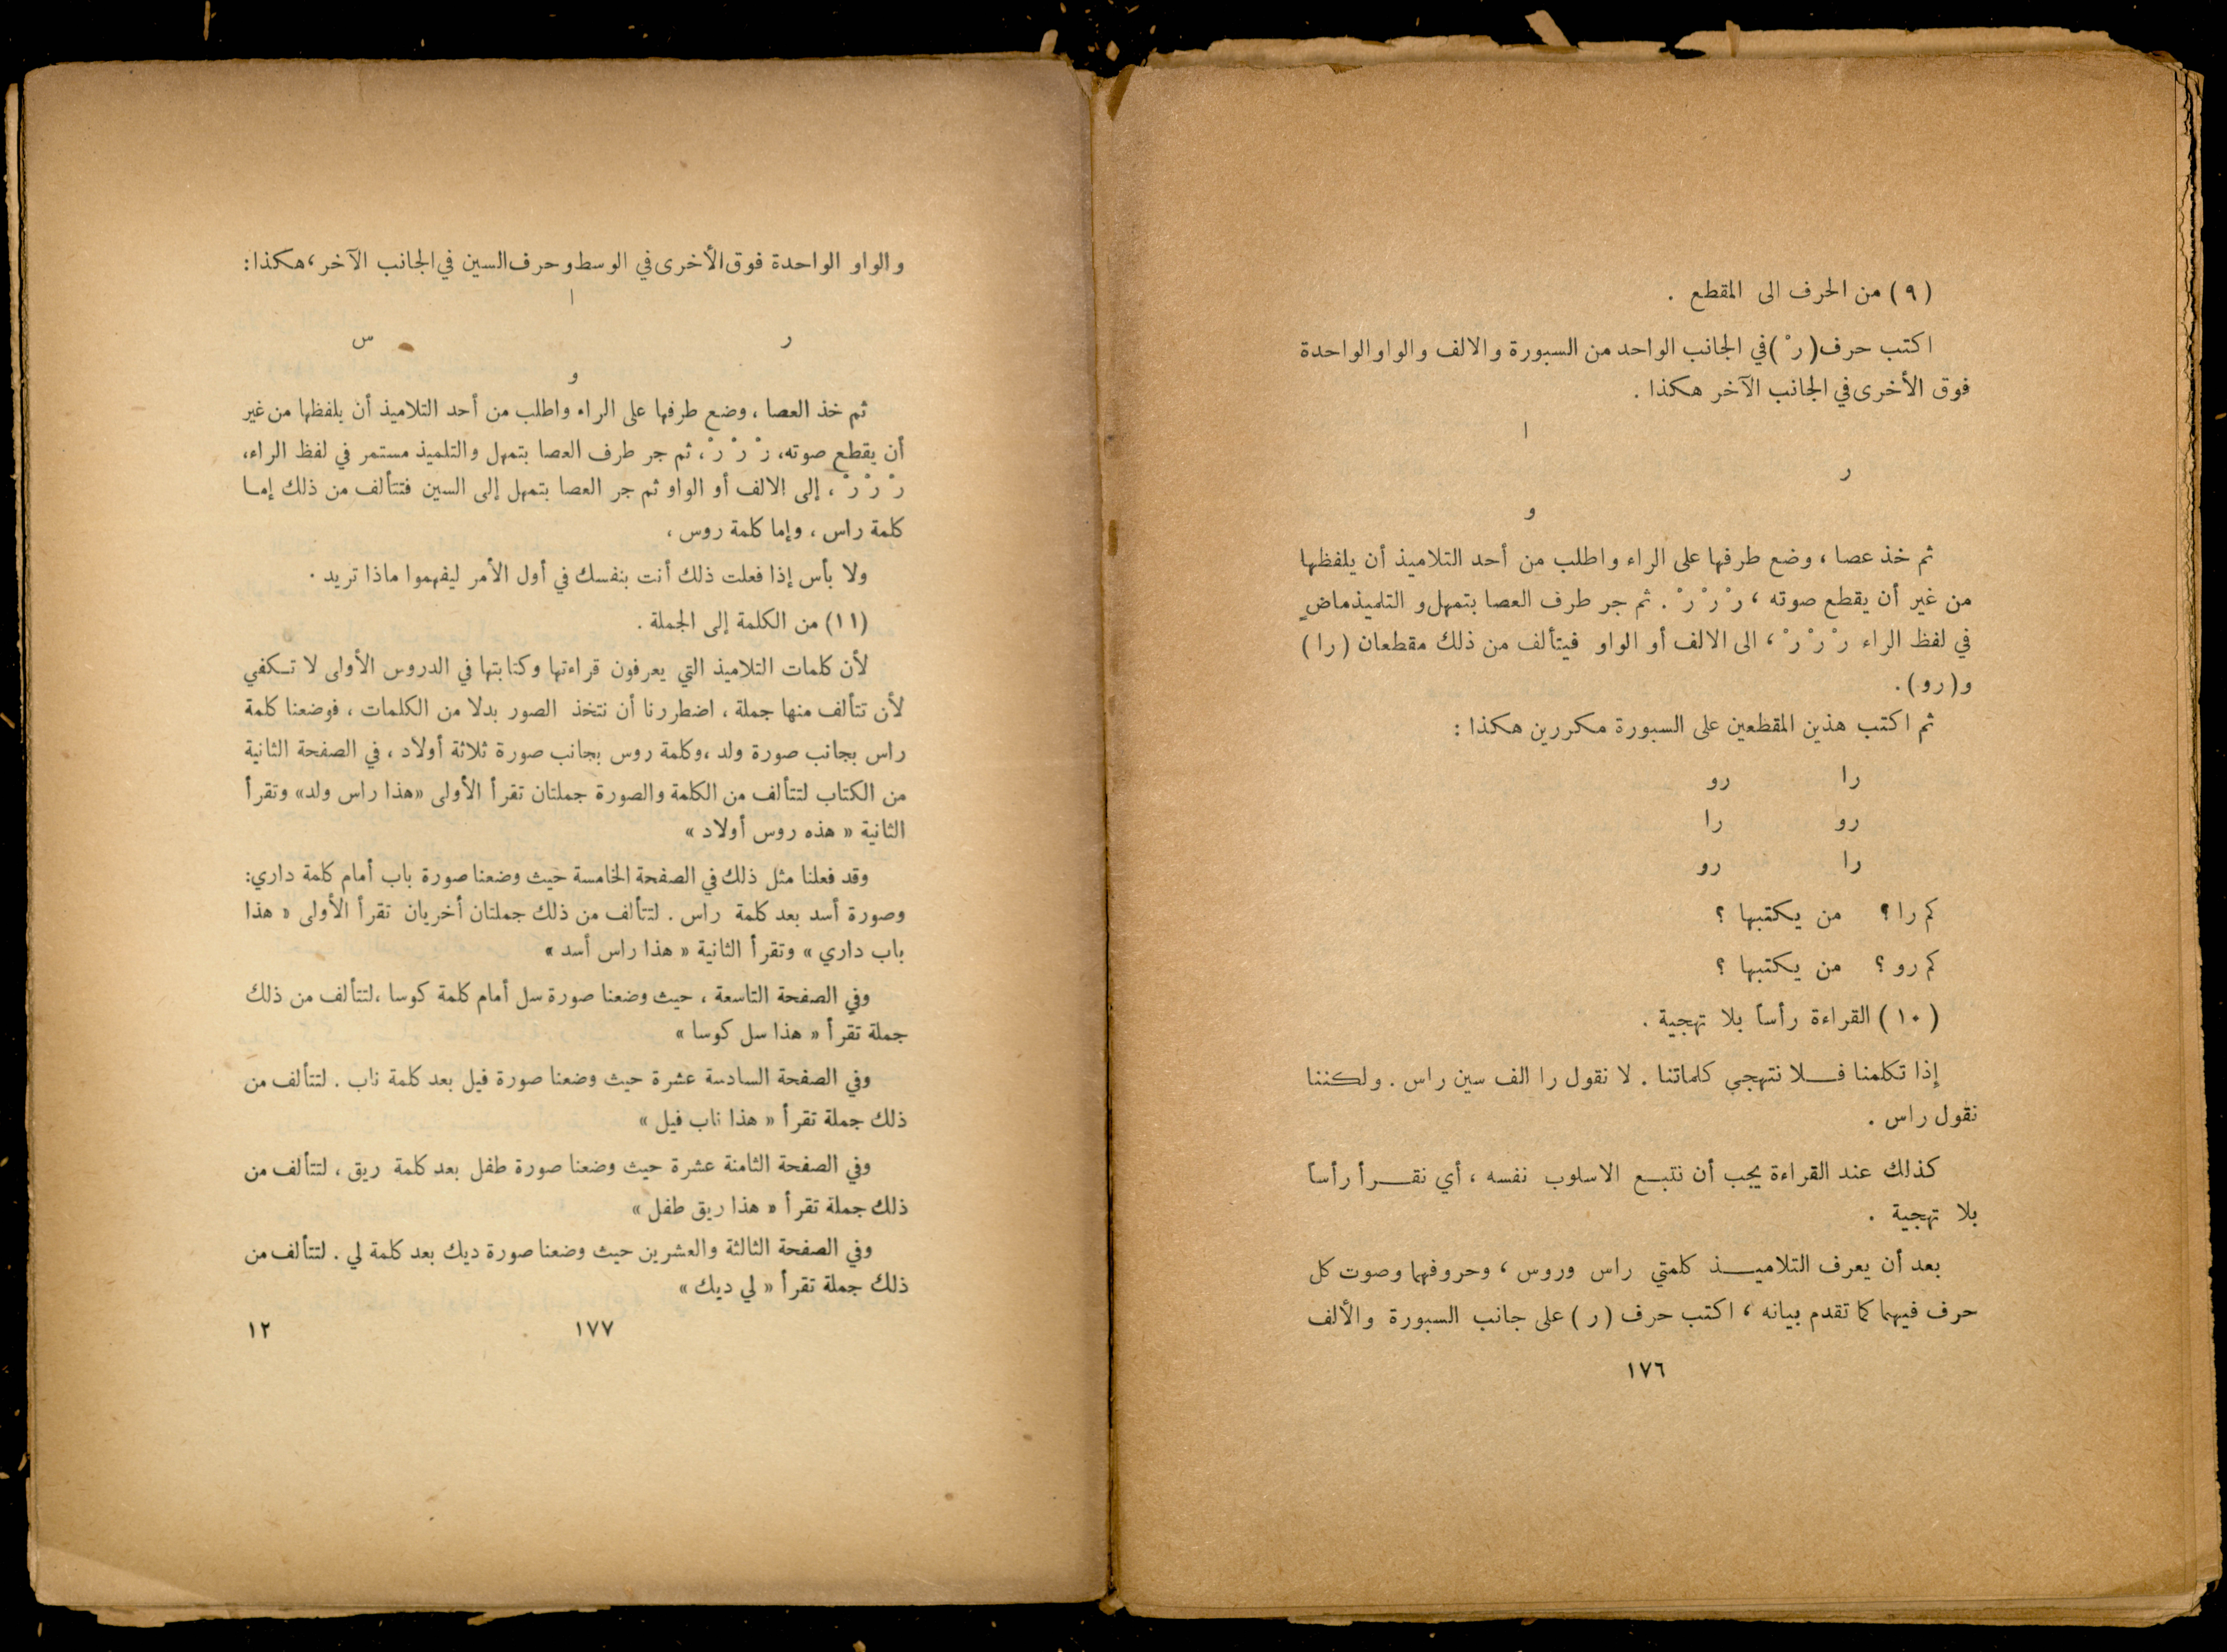 (٩) من الحرف الى المقطع .
اكتب حرف (رْ) في الجانب الواحد من السبورة والالف والواو الواحدة
فوق الأخرى في الجانب الآخر هكذا .
ا
ر
و
ثم خذ عصا ، وضع طرفها على الراء واطلب من أحد التلاميذ أن يلفظها
من غير أن يقطع صوته ، رْ رْ رْ . ثم جر طرف العصا بتمهل و التلميذ ماضٍ
في لفظ الراء رْ رْ رْ ، الى الالف أو الواو فيتألف من ذلك مقطعان (را)
و (رو) .
ثم اكتب هذين المقطعين على السبورة مكررين هكذا :
را رو
رو را
را رو
كم را ؟ من يكتبها ؟
كم رو ؟ من يكتبها ؟
(١٠) القراءة رأساً بلا تهجية .
إذا تكلمنا فلا نتهجى كلماتنا . لا نقول را الف سين راس . ولكننا
نقول راس .
كذلك عند القراءة يجب أن نتبع الاسلوب نفسه ، أي نقرأ رأساً
بلا تهجية .
بعد أن يعرف التلاميذ كلمتي راس وروس ، وحروفهما وصوت كل
حرف فيهما كما تقدم بيانه ، اكتب حرف (ر) على جانب السبورة والألف
١٧٦
والواو الواحدة فوق الأخرى في الوسط وحرف السين في الجانب الآخر ، هكذا :
ا
ر س
و
ثم خذ العصا ، وضع طرفها على الراء واطلب من أحد التلاميذ أن يلفظها من غير
أن يقطع صوته، رْ رْ رْ ، ثم جر طرف العصا بتمهل والتلميذ مستمر في لفظ الراء،
رْ رْ رْ ، إلى الالف أو الواو ثم جر العصا بتمهل إلى السين فتتألف من ذلك إما
كلمة راس ، وإما كلمة روس ،
ولا بأس إذا فعلت ذلك أنت بنفسك في أول الأمر ليفهموا ماذا تريد .
(١١) من الكلمة إلى الجملة .
لأن كلمات التلاميذ التي يعرفون قراءتها وكتابتها في الدروس الأولى لا تكفي
لأن تتألف منها جملة ، اضطررنا أن نتخذ الصور بدلا من الكلمات ، فوضعنا كلمة
راس بجانب صورة ولد ، وكلمة روس بجانب صورة ثلاثة أولاد ، في الصفحة الثانية
من الكتاب لتتألف من الكلمة والصورة جملتان تقرأ الأولى «هذا راس ولد» وتقرأ
الثانية « هذه روس أولاد »
وقد فعلنا مثل ذلك في الصفحة الخامسة حيث وضعنا صورة باب أمام كلمة داري:
وصورة أسد بعد كلمة راس . لتتألف من ذلك جملتان أخريان تقرأ الأولى « هذا
باب داري » وتقرأ الثانية « هذا راس أسد »
وفي الصفحة التاسعة ، حيث وضعنا صورة سل أمام كلمة كوسا ، لتتألف من ذلك
جملة تقرأ « هذا سل كوسا »
وفي الصفحة السادسة عشرة حيث وضعنا صورة فيل بعد كلمة ناب . لتتألف من
ذلك جملة تقرأ « هذا ناب فيل »
وفي الصفحة الثامنة عشرة حيث وضعنا صورة طفل بعد كلمة ريق ، لتتألف من
ذلك جملة تقرأ « هذا ريق طفل »
وفي الصفحة الثالثة والعشرين حيث وضعنا صورة ديك بعد كلمة لي . لتتألف من
ذلك جملة تقرأ « لي ديك »
١٧٧ ١٢